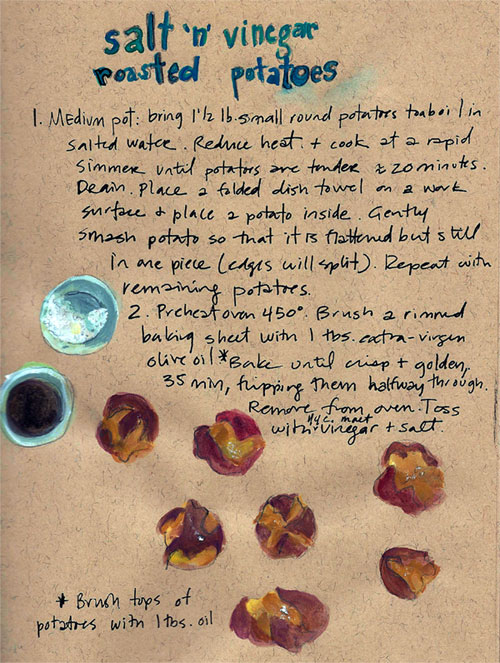 salt 'n' vinegar
roasted potatoes
1. Medium pot: bring 1 1/2 lb. small round potatoes to a boil in
salted water. Reduce heat + cook at a rapid
simmer until potatoes are tender ± 20 minutes.
Drain. Place a folded dish towel on a work
surface + place a potato inside. Gently
smash potato so that it is flattened but still
in one piece (edges will split). Repeat with
remaining potatoes.
2. Preheat oven 450°. Brush a rimmed
baking sheet with 1 tbs. extra-virgin
olive oil * Bake until crisp + golden,
35 min, flipping them halfway through.
Remove from oven. Toss
with 1/4 c. malt vinegar + salt.
* Brush tops of
potatoes with 1 tbs. oil